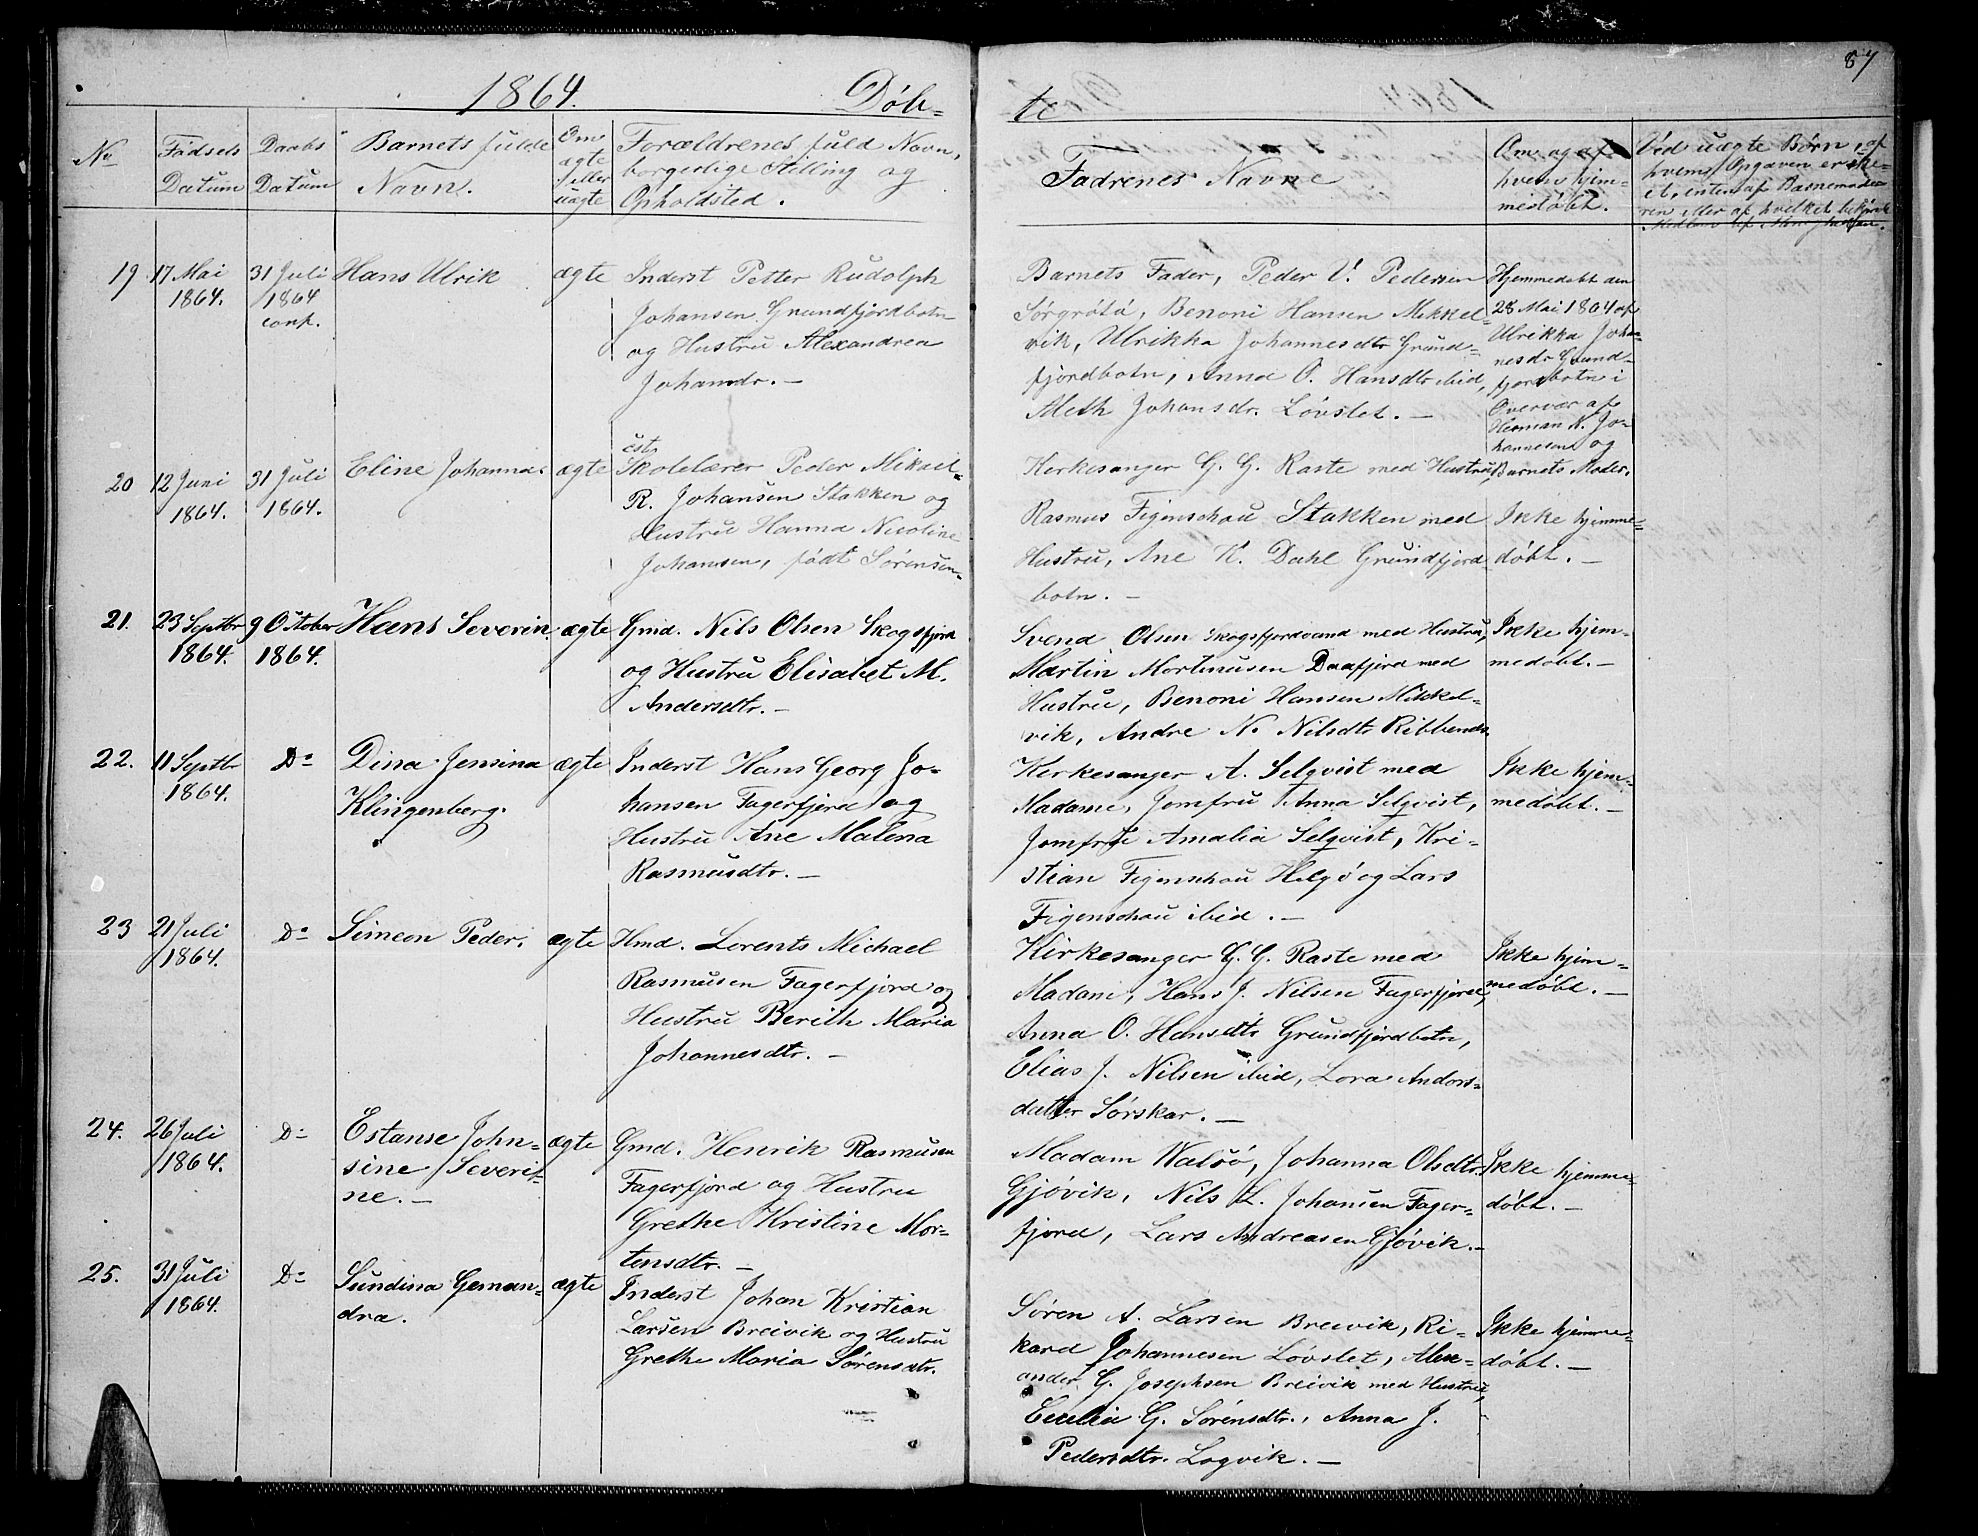 87
1864. Døb- te
No
Fødsels Datum
Daabs Datum
Barnets fulde Navn.
Om ægte eller uægte
Forældrenes fuld Navn, borgerlige Stilling og Opholdsted.
Fadrenes Navne
Om og af hvem hjem- medøbt.
Ved uægte Børn, af
hvem Opgaven er ske-
et, enten af Barnemode-
ren eller af hvilket
19. 17 Mai 1864. 31 Juli 1864 conf. Hans Ulrik ægte
Inderst Petter Rudolph
Johansen Grundfjordbotn
og Hustru Alexandrea
Johansdr. -
Barnets Fader, Peder V. Pedersen
Sørgrøtø, Benoni Hansen Mikkel-
vik, Ulrikka Johannesdtr Grund-
fjordbotn, Anna O. Hansdtr ibid,
Meth Johansdr. Løvslet. -
Hjemmedøbt den
28 Mai 1864 af
Ulrikka Johan-
nesdr Grund-
fjordbotn i
Overvær af
Herman A. Jo-
hannesen og
Barnets Moder.
20 12 Juni 1864. 31 Juli 1864. Eline Johanna. ægte
cst.
Skolelærer Peder Mikael
R. Johansen Stakken og
Hustru Hanna Nicoline
Johansen, født Sørensen.
Kirkesanger G. G. Raste med Hustru,
Rasmus Figenschau Stakken med
Hustru, Ane K. Dahl Grundfjord
botn. -
Ikke hjemme-
døbt. -
21. 23 Septbr 1864. 9 October 1864. Hans Severin. ægte
Gmd. Nils Olsen Skogsfjord
og Hustru Elisabet M.
Andersdtr. -
Svend Olsen Skogsfjordvand med Hustru,
Martin Mortinusen Daafjord med
Hustru, Benoni Hansen Mikkel-
vik, Andre N. Nilsdtr Ribbenes.
Ikke hjem-
medøbt. -
22. 11 Septbr 1864. Do Dina Jensina Klingenberg. ægte
Inderst Hans Georg Jo-
hansen Fagerfjord og
Hustru Ane Malena
Rasmusdtr. -
Kirkesanger A. Selqvist med
Madame, Jomfru Anna Selqvist,
Jomfru Amalia Selqvist, Kri-
stian Figenschau Helgø og Lars
Figenschau ibid. -
Ikke hjem-
medøbt. -
23 21 Juli 1864. Do Simeon Peder. ægte
Hmd. Lorents Michael
Rasmusen Fagerfjord og
Hustru Berith Maria
Johannesdtr. -
Kirkesanger G. G. Raste med
Madam, Hans J. Nilsen Fagerfjord,
Anna O. Hansdtr Grundfjordbotn,
Elias J. Nilsen ibid, Lora Anders-
datter Sørskar. -
Ikke hjem-
medøbt. -
24. 26 Juli 1864. Do Estanse John- sine Severi- ne. - ægte
Gmd. Henrik Rasmusen
Fagerfjord og Hustru
Grethe Kristine Mor-
tensdtr. -
Madam Walsø, Johanna Olsdtr.
Gjøvik, Nils L. Johansen Fager-
fjord, Lars Andreasen Gjøvik. -
Ikke hjemme-
døbt. -
25. 31 Juli 1864. Do Sundina Geman- dra. ægte
Inderst Johan Kristian
Larsen Breivik og Hustru
Grethe Maria Sørensdtr.
Søren A. Larsen Breivik, Ri-
kard Johannesen Løvslet, Alex-
ander G. Josephsen Breivik med Hustru,
Cecilia G. Sørensdtr., Anna J.
Pedersdtr. Logvik. -
Ikke hjemme-
døbt. -